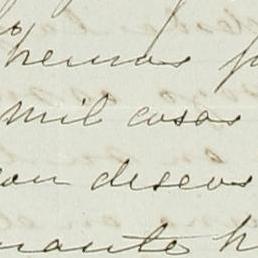 hemos
mil cosas
con deseos
mante